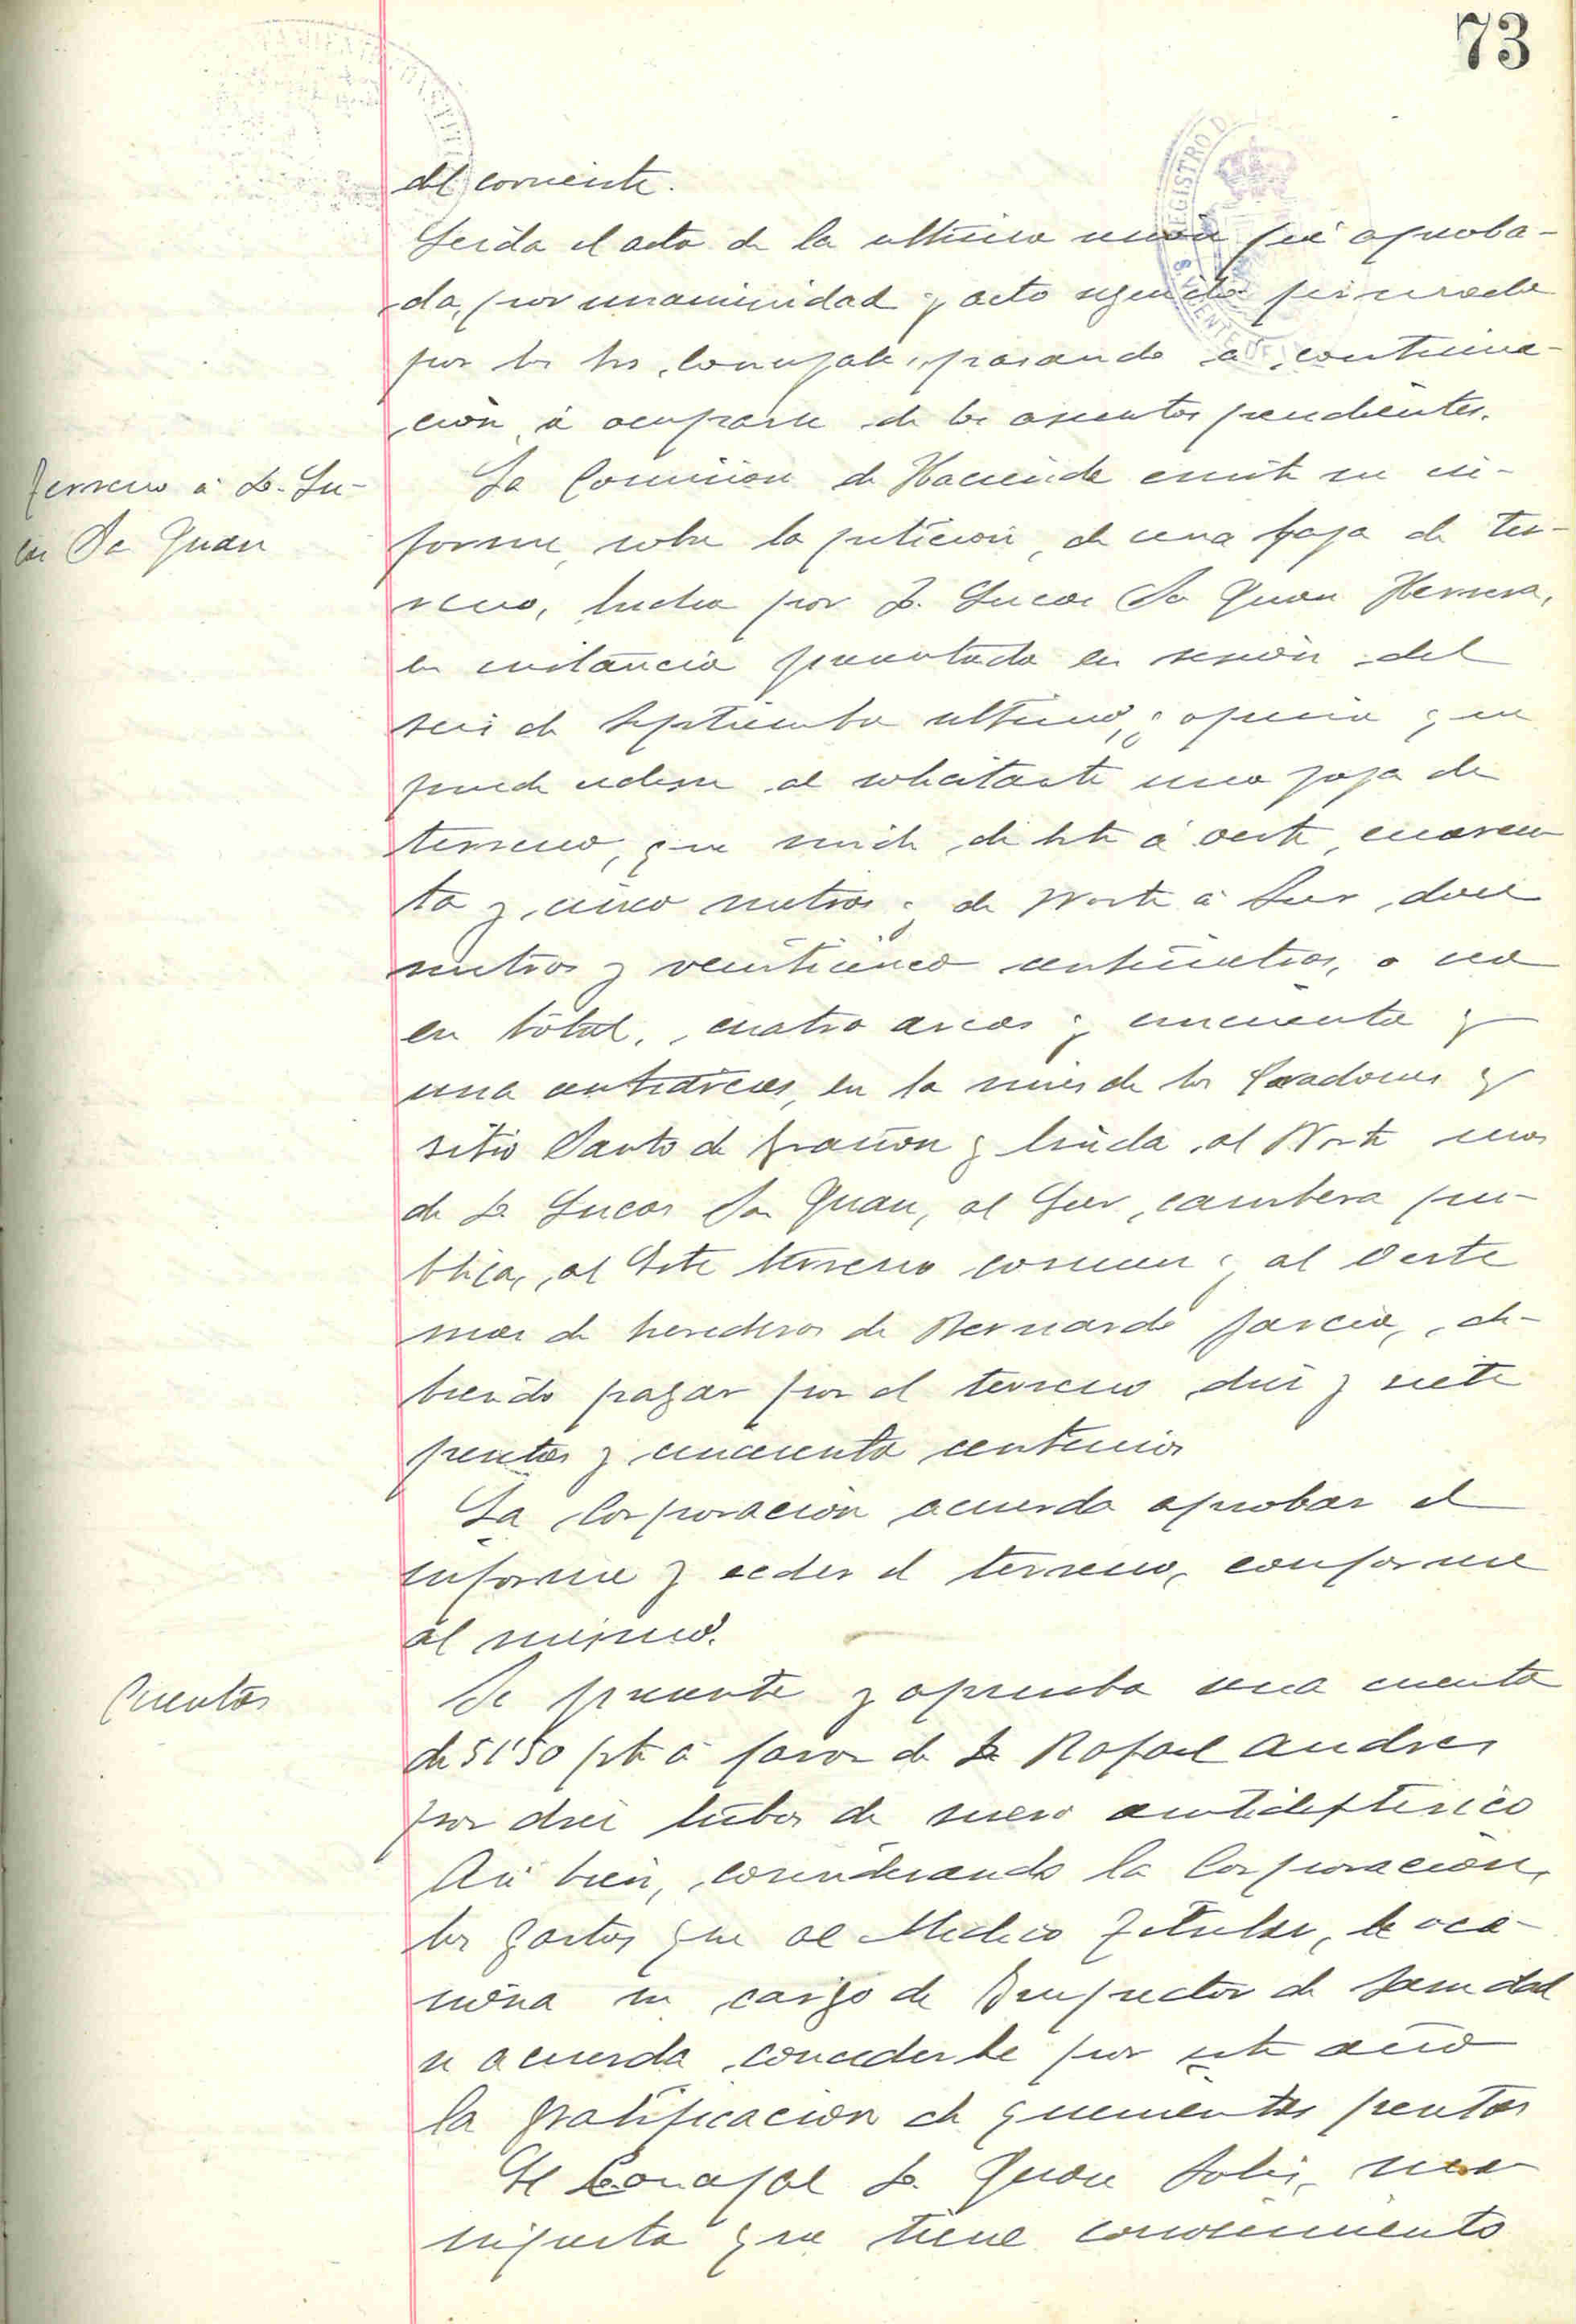 73
del corriente.
Leida el acta de la ultima sesión fué aproba-
da, por unanimidad y acto seguido firmada
por los Srs. Concejales, pasando a continua-
ción, á ocuparse de los asuntos pendientes.
Terreno á D. Lu-
cas Sn Juan
La Comision de Hacienda emite su in-
forme, sobre la petición, de una faja de ter-
reno, hecha por D. Lucas Sn Juan Herrera,
en instancia presentada en sesión del
seis de Septiembre ultimo, y opina que
puede cederse al solicitante una faja de
terreno, que mide, de Este á Oeste, cuaren
ta y cinco metros y de Norte á Sur, diez
metros y veinticinco centimetros, o sea
en total, cuatro areas y cincuenta y
una centiáreas, en la mies de los
sitio y linda, al Norte mas
de D. Lucas Sn Juan, al Sur, cambera pu-
blica, al Este terreno comun y al Oeste
mas de herederos de Bernardo Garcia, de-
biendo pagar por el terreno diez y siete
pesetas y cincuenta centimos
La Corporación acuerda aprobar el
informe y ceder el terreno, conforme
al mismo.
Cuentas
Se presenta y aprueba una cuenta
de 51'50 pts á favor de D. Rafael Andres
por diez tubos de suero antidiftérico
Asi bien, considerando la Corporación,
los gastos que al Medico Titular, le oca-
siona su cargo de Inspector de Sanidad
se acuerda concederle por este año
la gratificación de quinientas pesetas
El Concejal D. Juan Solis, ma
nifiesta que tiene conocimiento